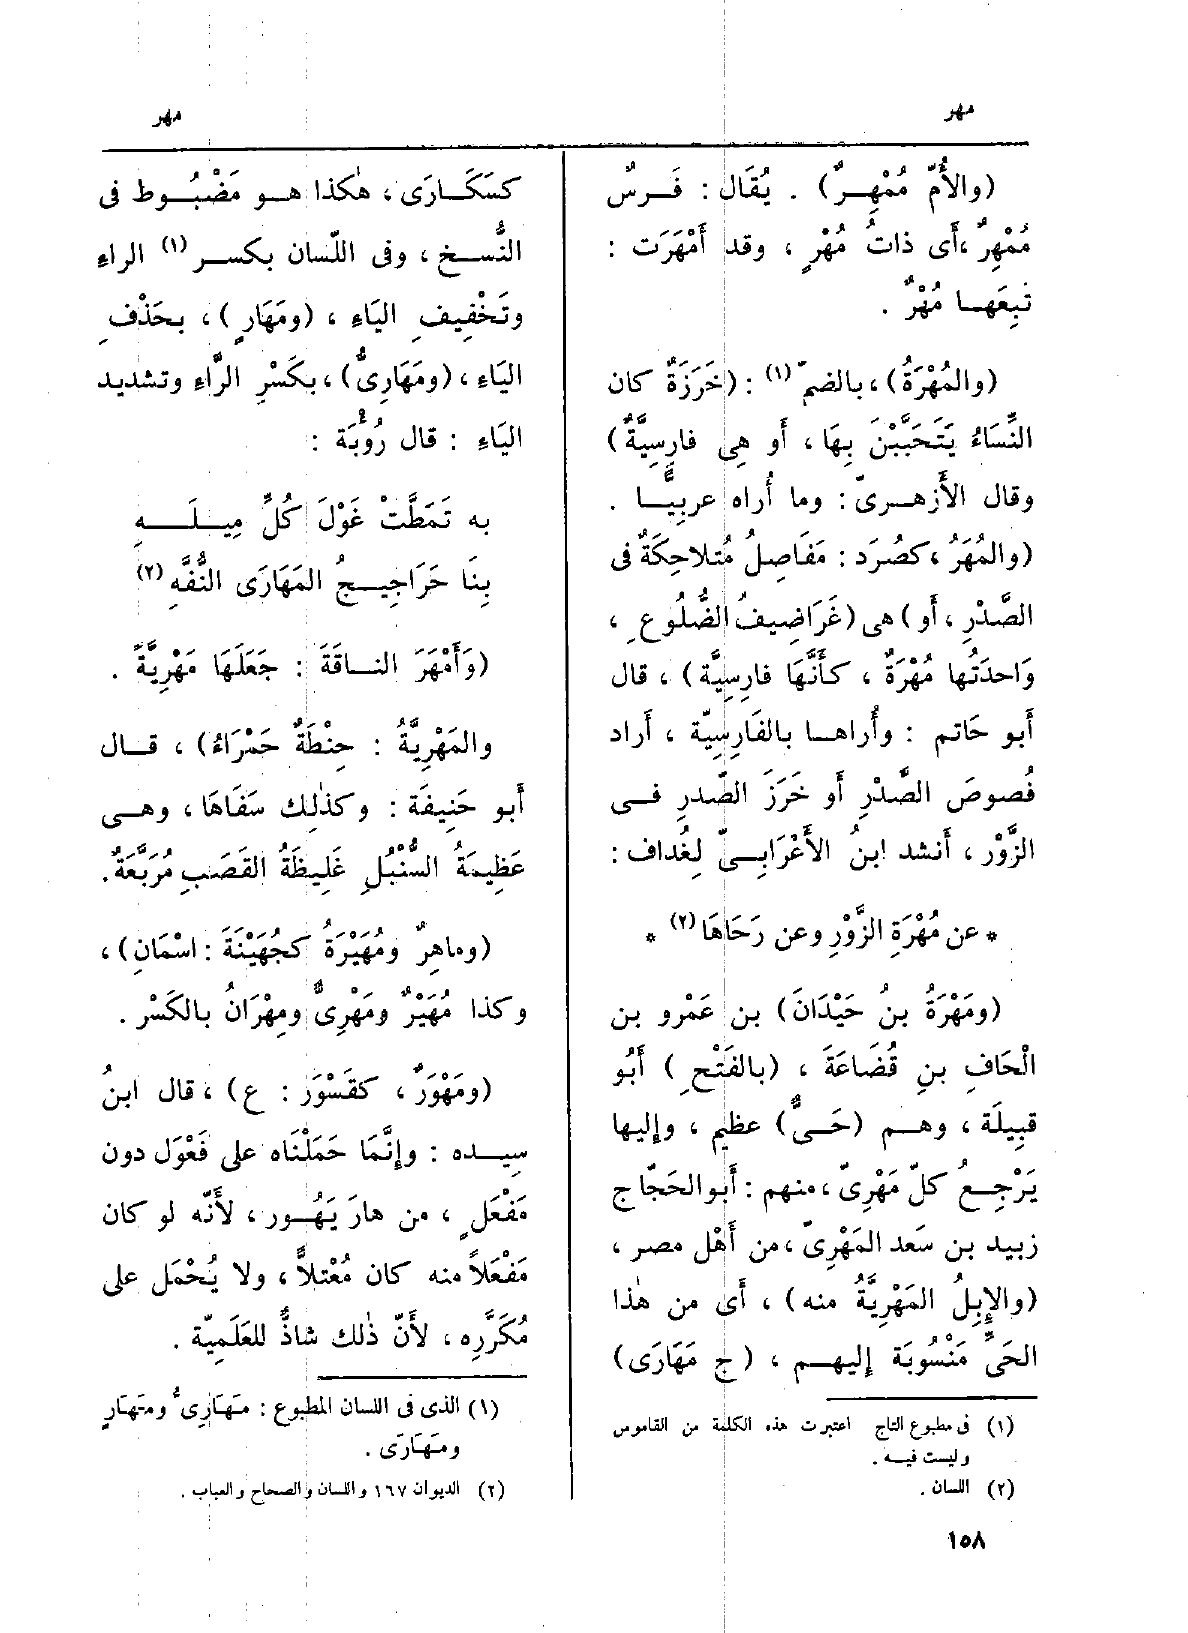 مهر
مهر
(والأُمّ مُمْهِرٌ) . يُقَال : فَرسٌ
مُمْهِرٌ ،أَى ذاتُ مُهْرٍ ، وقد أَمْهَرَت :
تَبِعَهـا مُهْرٌ .
(والمُهْرَةُ) ، بالضمّ (١) : (خَرَزَةٌ كان
النِّسَاءُ يَتَحَبَّبْنَ بِهَا ، أَو هِى فارِسِيَّةٌ)
وقال الأَزهـرىّ : وما أُراه عربيًّـا .
(والمُهَرُ ، كصُرَد : مَفَاصِلُ مُتلاحِكَةٌ فى
الصَّدْرِ ، أَو) هى (غَرَاضِيفُ الضُّلُوعِ ،
وَاحدَتُها مُهْرَةٌ ، كأَنَّهَا فارِسِيَّة) ، قال
أَبو حَاتم : وأُراهـا بالفَارِسِيّة ، أَراد
فُصوصَ الصَّدْرِ أَو خَرَزَ الصّدرِ فـى
الزَّوْر ، أَنشد ابنُ الأَعْرَابِـىّ لِغُداف :
* عن مُهْرَةِ الزَّوْرِ وعن رَحَاهَا (٢) *
(ومَهْرَةُ بنُ حَيْدَانَ) بن عَمْرو بن
الْحَافِ بنِ قُضَاعَةَ ، (بالفَتْحِ) أَبُو
قبِيلَة ، وهـم (حَـىٌّ) عظيم ، وإليها
يَرْجِـعُ كلّ مَهْرِىّ ، منهم : أَبو الحَجّاج
زبيد بن سَعد المَهْرِىّ ، من أَهْل مصر ،
(والإِبِلُ المَهْرِيَّةُ منه) ، أَى من هٰذا
الحَىِّ مَنْسُوبَة إليهـم ، (ج مَهَارَى)
(١) فى مطبوع التاج اعتبرت هذه الكلمة من القاموس
وليست فيـه .
(٢) اللسان .
كسَكَـارَى ، هٰكذا هـو مَضْبُـوط فى
النُّسـخ ، وفى اللّسان بكسـر (١) الراءِ
وتَخْفِيفِ اليَاءِ ، (ومَهَارٍ) ، بحَذْفِ
اليَاءِ ، (ومَهَارِىُّ) ، بكَسْرِ الرَّاءِ وتشديد
اليَاءِ : قال رُؤْبَة :
به تَمَطَّتْ غَوْلَ كُلِّ مِيـلَـهِ
بِنَا حَرَاجِيـجُ المَهَارَى النُّفَّهِ (٢)
(وَأَمْهَرَ النـاقَةَ : جَعَلَهَا مَهْرِيَّةً .
والمَهْرِيَّةُ : حِنطَةٌ حَمْرَاءُ) ، قـال
أَبو حَنِيفَة : وكذٰلِك سَفَاهَا ، وهـى
عَظِيمَةُ السُّنْبُلِ غَلِيظَةُ القَصَبِ مُرَبَّعَةٌ .
(وماهِرٌ ومُهَيْرَةُ كجُهَيْنَةَ : اسْمَانِ) ،
وكذا مُهَيْرٌ ومَهْرِىٌّ ومِهْرَانُ بالكَسْر .
(ومَهْوَرٌ ، كقَسْوَرَ : ع) ، قال ابنُ
سِيـده : وإِنَّمَا حَمَلْنَاه على فَعْوَل دون
مَفْعَلٍ ، من هارَ يَهُـور ، لأَنّه لو كان
مَفْعَلاً منه كان مُعْتلاًّ ، ولا يُحْمَل على
مُكَرَّره ، لأَنّ ذٰلك شاذٌّ للعَلَمِيّة .
(١) الذى فى اللسان المطبوع : مَهَارِىُّ ومَهَارٍ
ومَهَارَى .
(٢) الديوان ١٦٧ واللسان والصحاح والعباب .
١٥٨